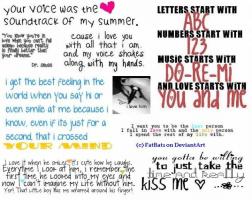 your voice was the
soundtrack of my summer.
"You know you're in
love when you can't fall
asleep because reality
is finally better than
your dreams."
Dr. Seuss
cause i love you
with all that i am
and my voice shakes
along with my hands.
LETTERS START WITH
ABC
NUMBERS START WITH
123
MUSIC STARTS WITH
DO-RE-MI
AND LOVE STARTS WITH
YOU and ME
i get the best feeling in the
world when you say hi or
even smile at me because i
know, even if its just for a
second, that i crossed
YOUR MIND
i love him
I want you to be the last person
I fall in love with and the only person
I spend the rest of my life with.
(c) FatBats on DeviantArt
I love it when he smiles. It's cute how he laughs.
Everytime I look at him, i remember the
first time he looked into my eyes and
now i can't imagine my life without him.
Yep! That little boy has me wrapped around his finger!
you gotta be willing
to just take the
time and really
kiss me